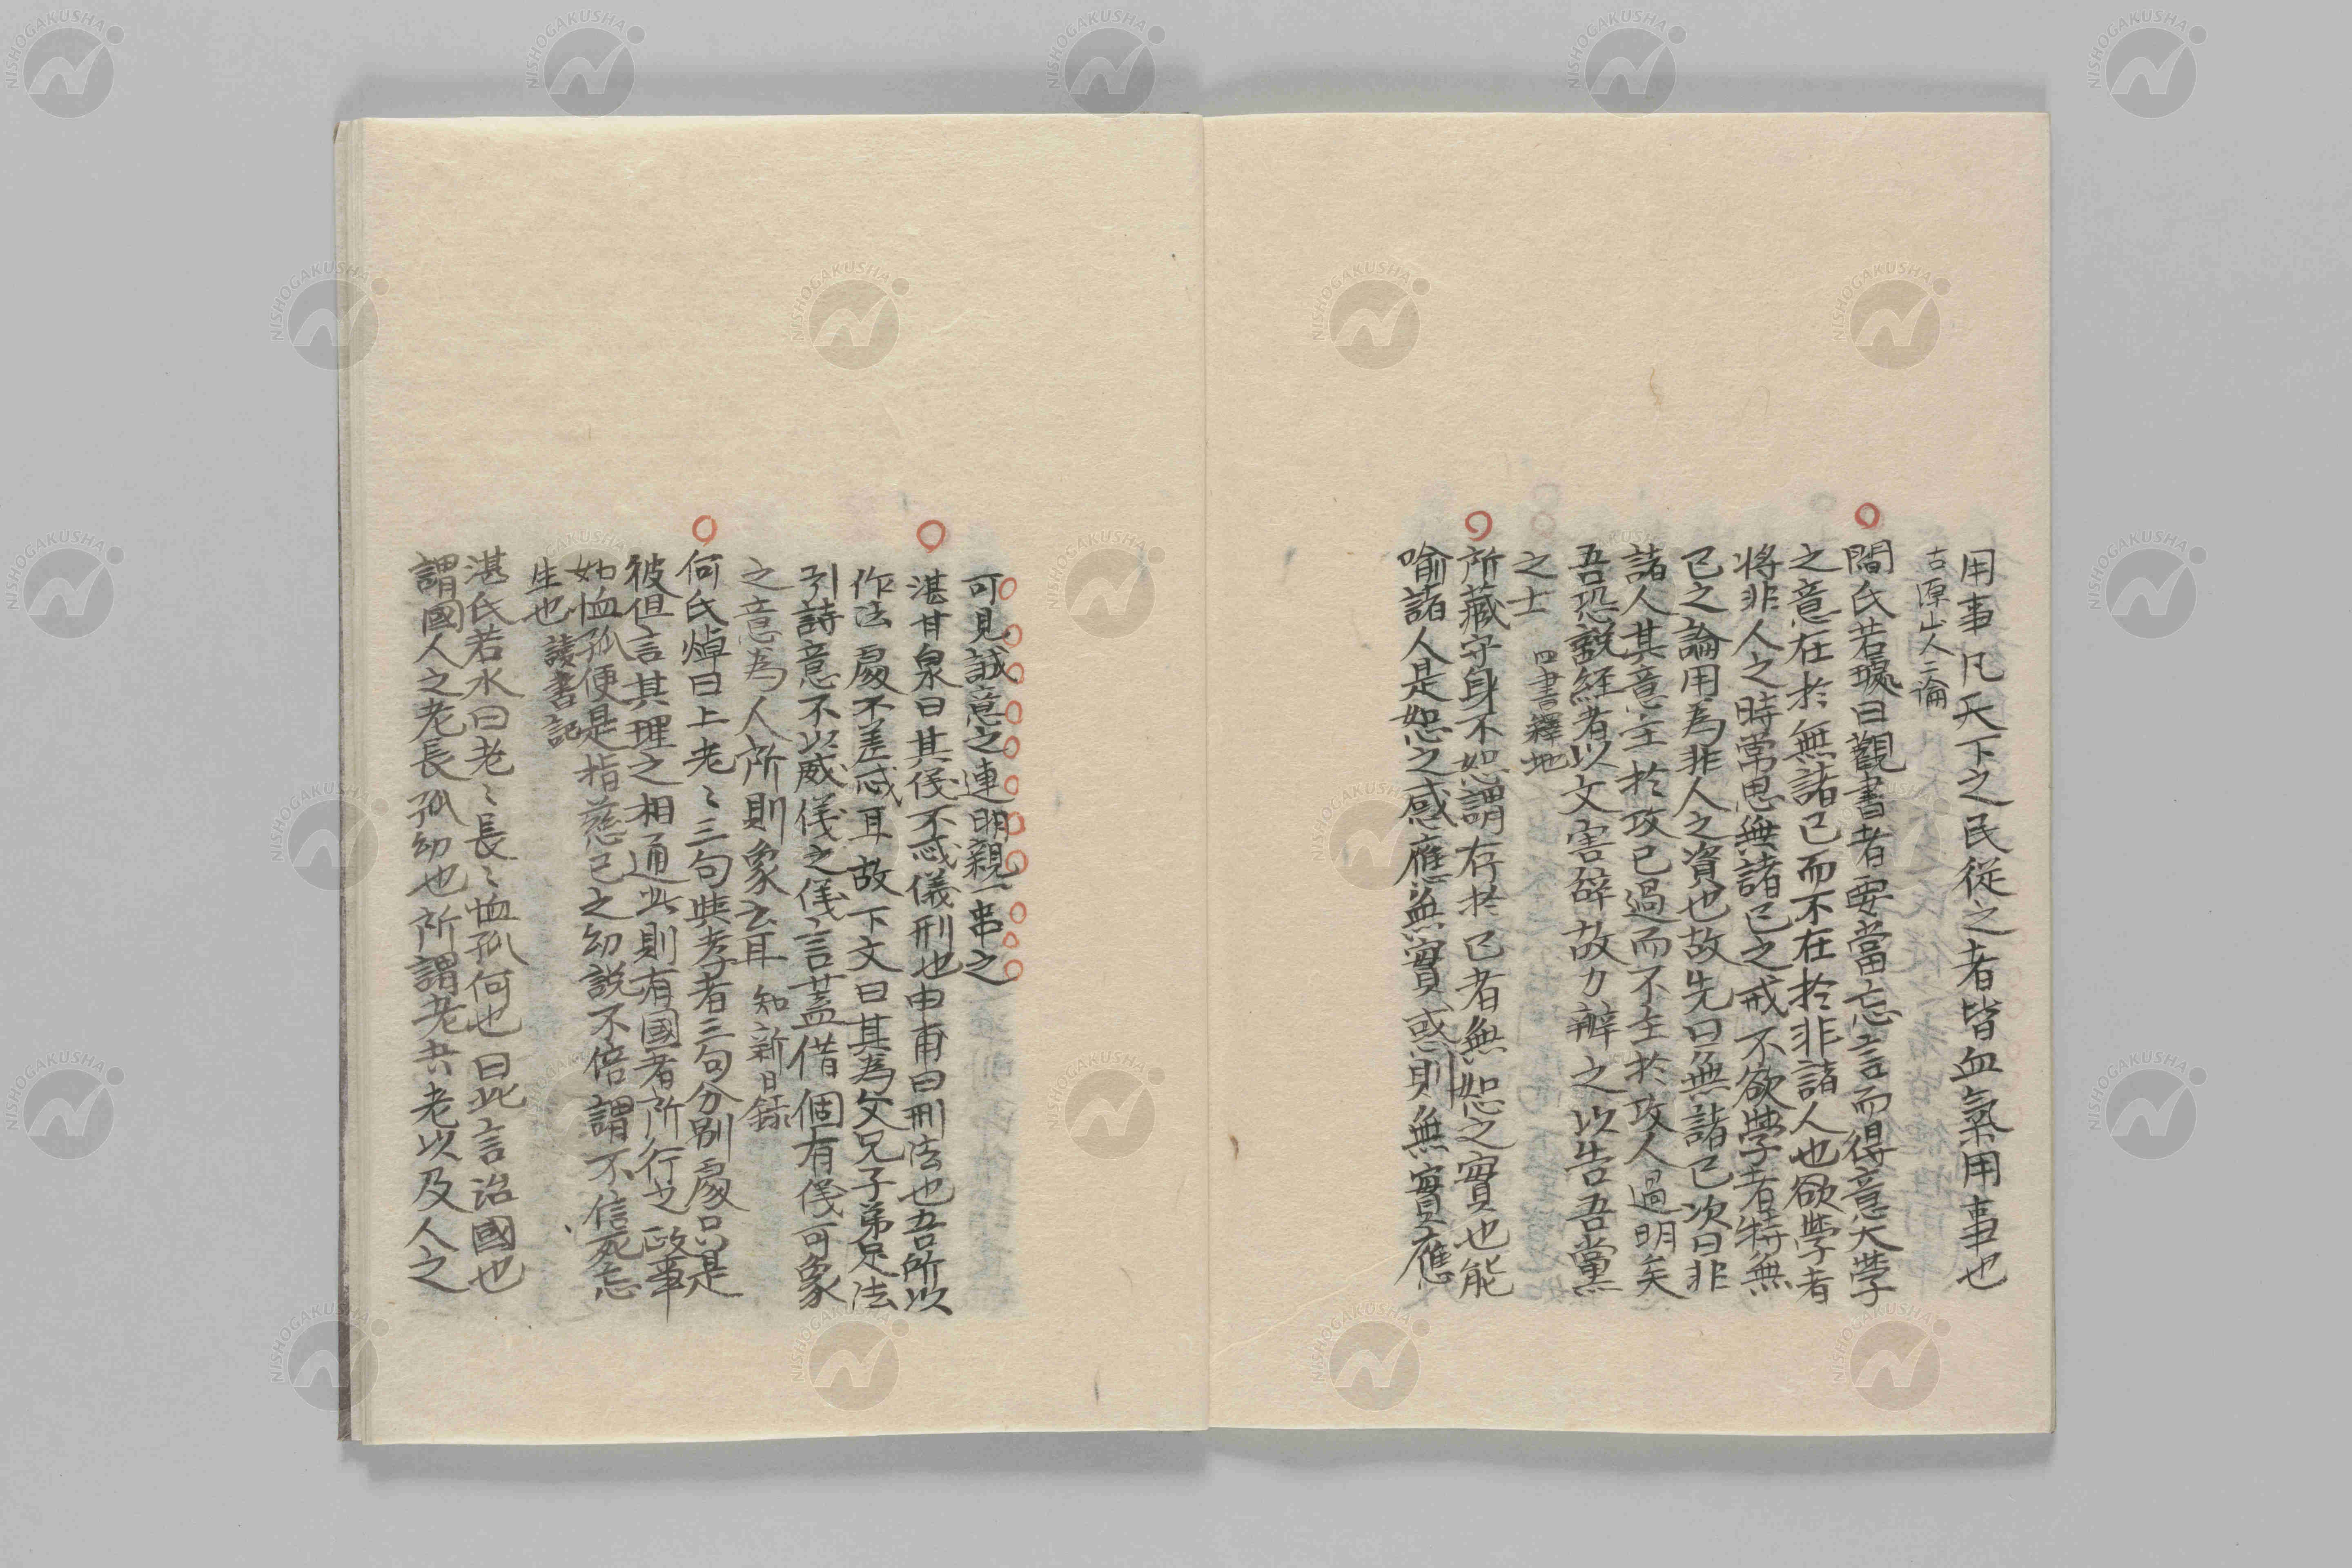 用事凡天下之民從之者皆血氣用事也
古原山人三論
閻氏若璩曰觀書者要當忘言而得意大學
之意在於無諸己而不在於非諸人也欲學者
將非人之時常思無諸己之戒不欲學者特無
己之論用為非人之資也故先曰無諸己次曰非
諸人其意主於攻己過而不主於攻人過明矣
吾恐説經者以文害辭故力辨之以告吾黨
之士 四書釋地
所藏守身不恕謂存於己者無恕之實也能
喻諸人是恕之感應無實感則無實應
可見誠意之連明親一串之
湛甘泉曰其儀不忒儀刑也申甫曰刑法也吾所以
作法處不差忒耳故下文曰其為父兄子弟足法
引詩意不以威儀之儀言蓋借個有儀可象
之意為人所則象云耳 知新日錄
何氏焯曰上老〻三句與孝者三句分別處只是
彼但言其理之相通此則有國者所行之政事
如恤孤便是指慈已之幼説不倍謂不信死忘
生也 讀書記
湛氏若水曰老〻長〻恤孤何也曰此言治國也
謂國人之老長孤幼也所謂老共老以及人之
NISHOGAKUSHA